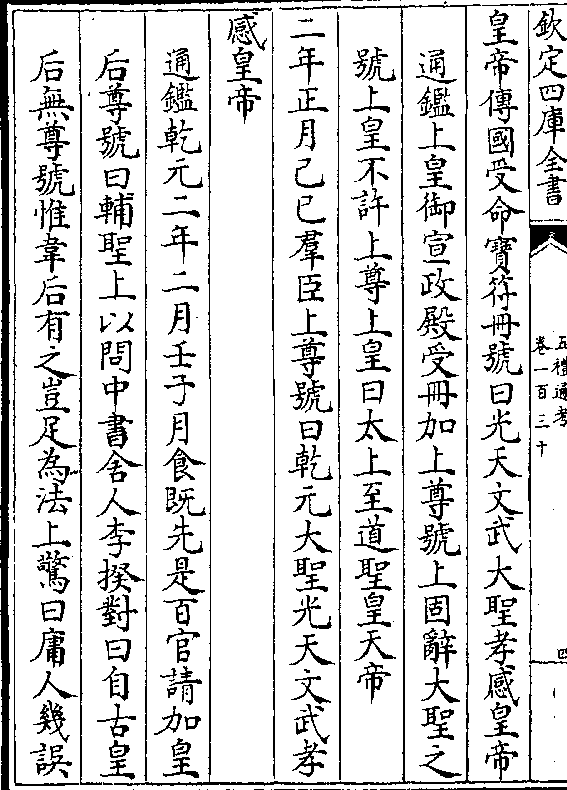 欽定四庫全書
五禮通考
卷一百三十
四
皇帝傳國受命寳符冊號曰光天文武大聖孝感皇帝
通鑑上皇御宣政殿受冊加上尊號上固辭大聖之
號上皇不許上尊上皇曰太上至道聖皇天帝
二年正月己巳羣臣上尊號曰乾元大聖光天文武孝
感皇帝
通鑑乾元二年二月壬子月食既先是百官請加皇
后尊號曰輔聖上以問中書舍人李揆對曰自古皇
后無尊號惟韋后有之豈足為法上驚曰庸人幾誤